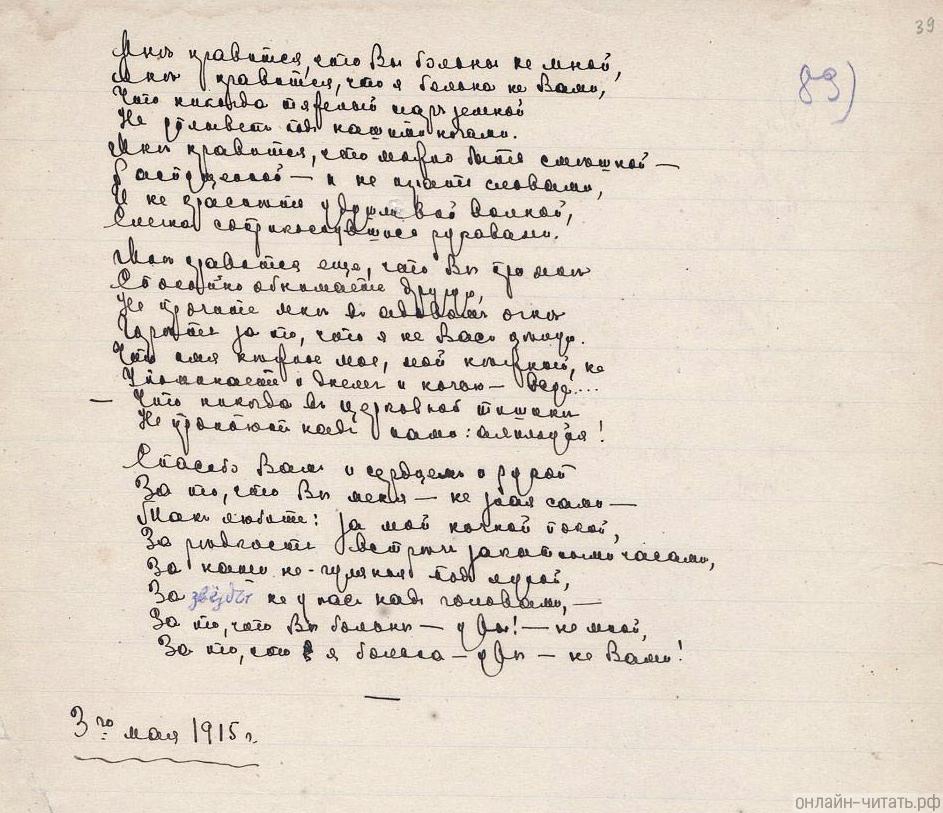 39
89)
Мнѣ нравится, что Вы больны не мной,
Мнѣ нравится, что я больна не Вами,
Что никогда тяжелый шаръ земной
Не уплыветъ подъ нашими ногами.
Мнѣ нравится, что можно быть смѣшной —
Распущенной — и не играть словами,
И не краснѣть удушливой волной,
Слегка соприкоснувшись рукавами.
Мнѣ нравится еще, что Вы при мнѣ
Спокойно обнимаете другую,
Не прочите мнѣ въ адовомъ огнѣ
Горѣть за то, что я не Васъ цѣлую.
Что имя нѣжное мое, мой нѣжный, не
Упоминаете ни днемъ ни ночью — всуе...
Что никогда въ церковной тишинѣ
Не пропоютъ надъ нами: аллилуйя!
Спасибо Вамъ и сердцемъ и рукой
За то, что Вы меня — не зная сами —
Такъ любите: за мой ночной покой,
За рѣдкость встрѣчъ закатными часами,
За наши не-гулянья подъ луной,
За звѣзды не у насъ надъ головами, —
За то, что Вы больны — увы! — не мной,
За то, что я больна — увы — не Вами!
3го мая 1915 г.
онлайн-читать.рф